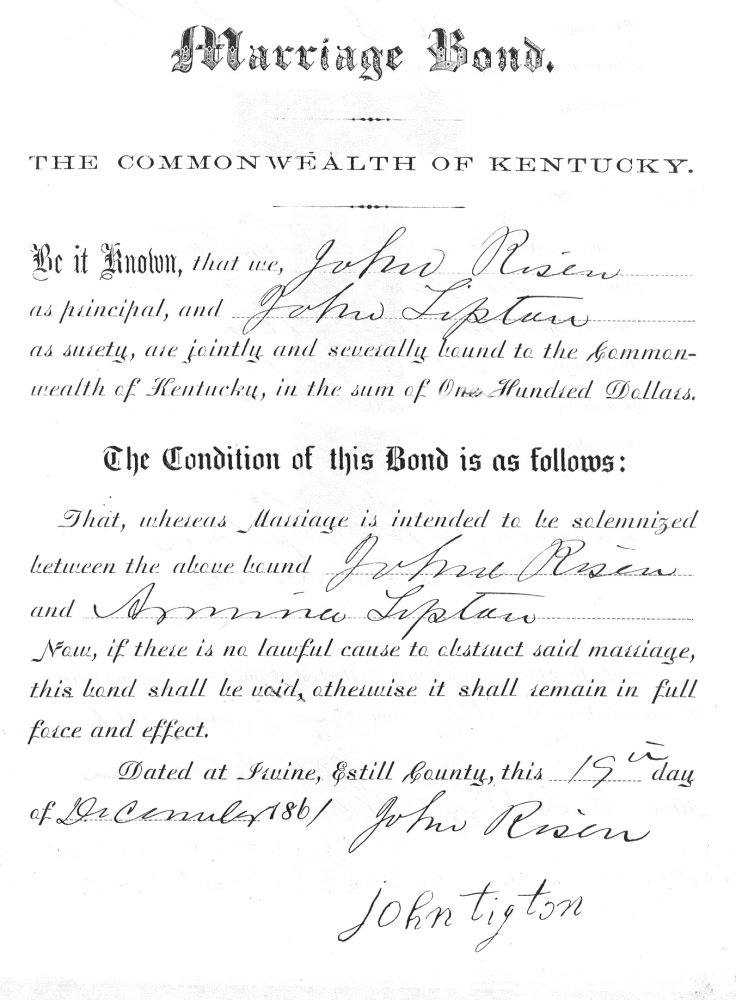 Marriage Bond.
THE COMMONWEALTH OF KENTUCKY.
Be it Known, that we, John Risen
as principal, and John Tipton
as surety, are jointly and severally bound to the Common-
wealth of Kentucky, in the sum of One Hundred Dollars.
The Condition of this Bond is as follows:
That, whereas Marriage is intended to be solemnized
between the above bound John Risen
and Armina Tipton
Now, if there is no lawful cause to obstruct said marriage,
this bond shall be void, otherwise it shall remain in full
force and effect.
Dated at Irvine, Estill County, this 19th day
of December 1861 John Risen
John tigton